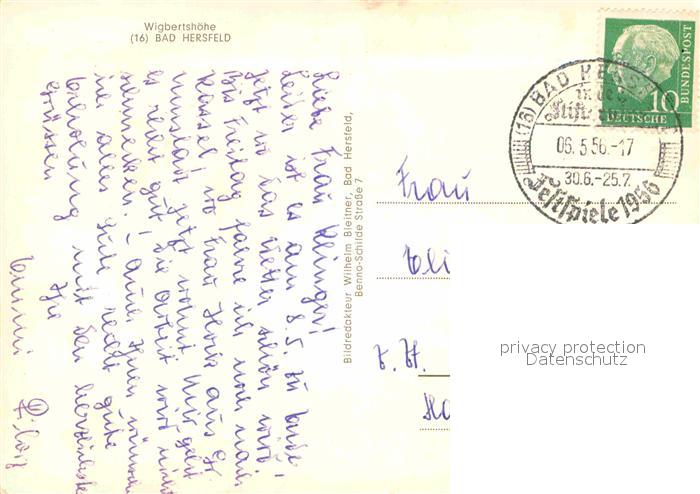 Wigbertshöhe
(16) BAD HERSFELD
Liebe Frau Klinger!
Leider ist es am 8.5. zu Ende,
jetzt wo das Wetter schön wird,
Bis Freitag fahre ich noch nach
Kassel, wo Frau Horis aus Gr.
jetzt wohnt. Mir geht
es recht gut, die Arbeit wird nicht
schmecken. Ihnen wünsche
ich alles Gute recht gute
Erholung mit den herzlichsten
Grüssen Ihre
Emmi
Bildredakteur Wilhelm Bleitner, Bad Hersfeld,
Benno-Schilde Straße 7
Frau
z. Zt.
10
DEUTSCHE
BUNDESPOST
(16) BAD HERSF
in der
Stifts
06.5.56.-17
30.6.-25.7.
Festspiele 1956
privacy protection
Datenschutz